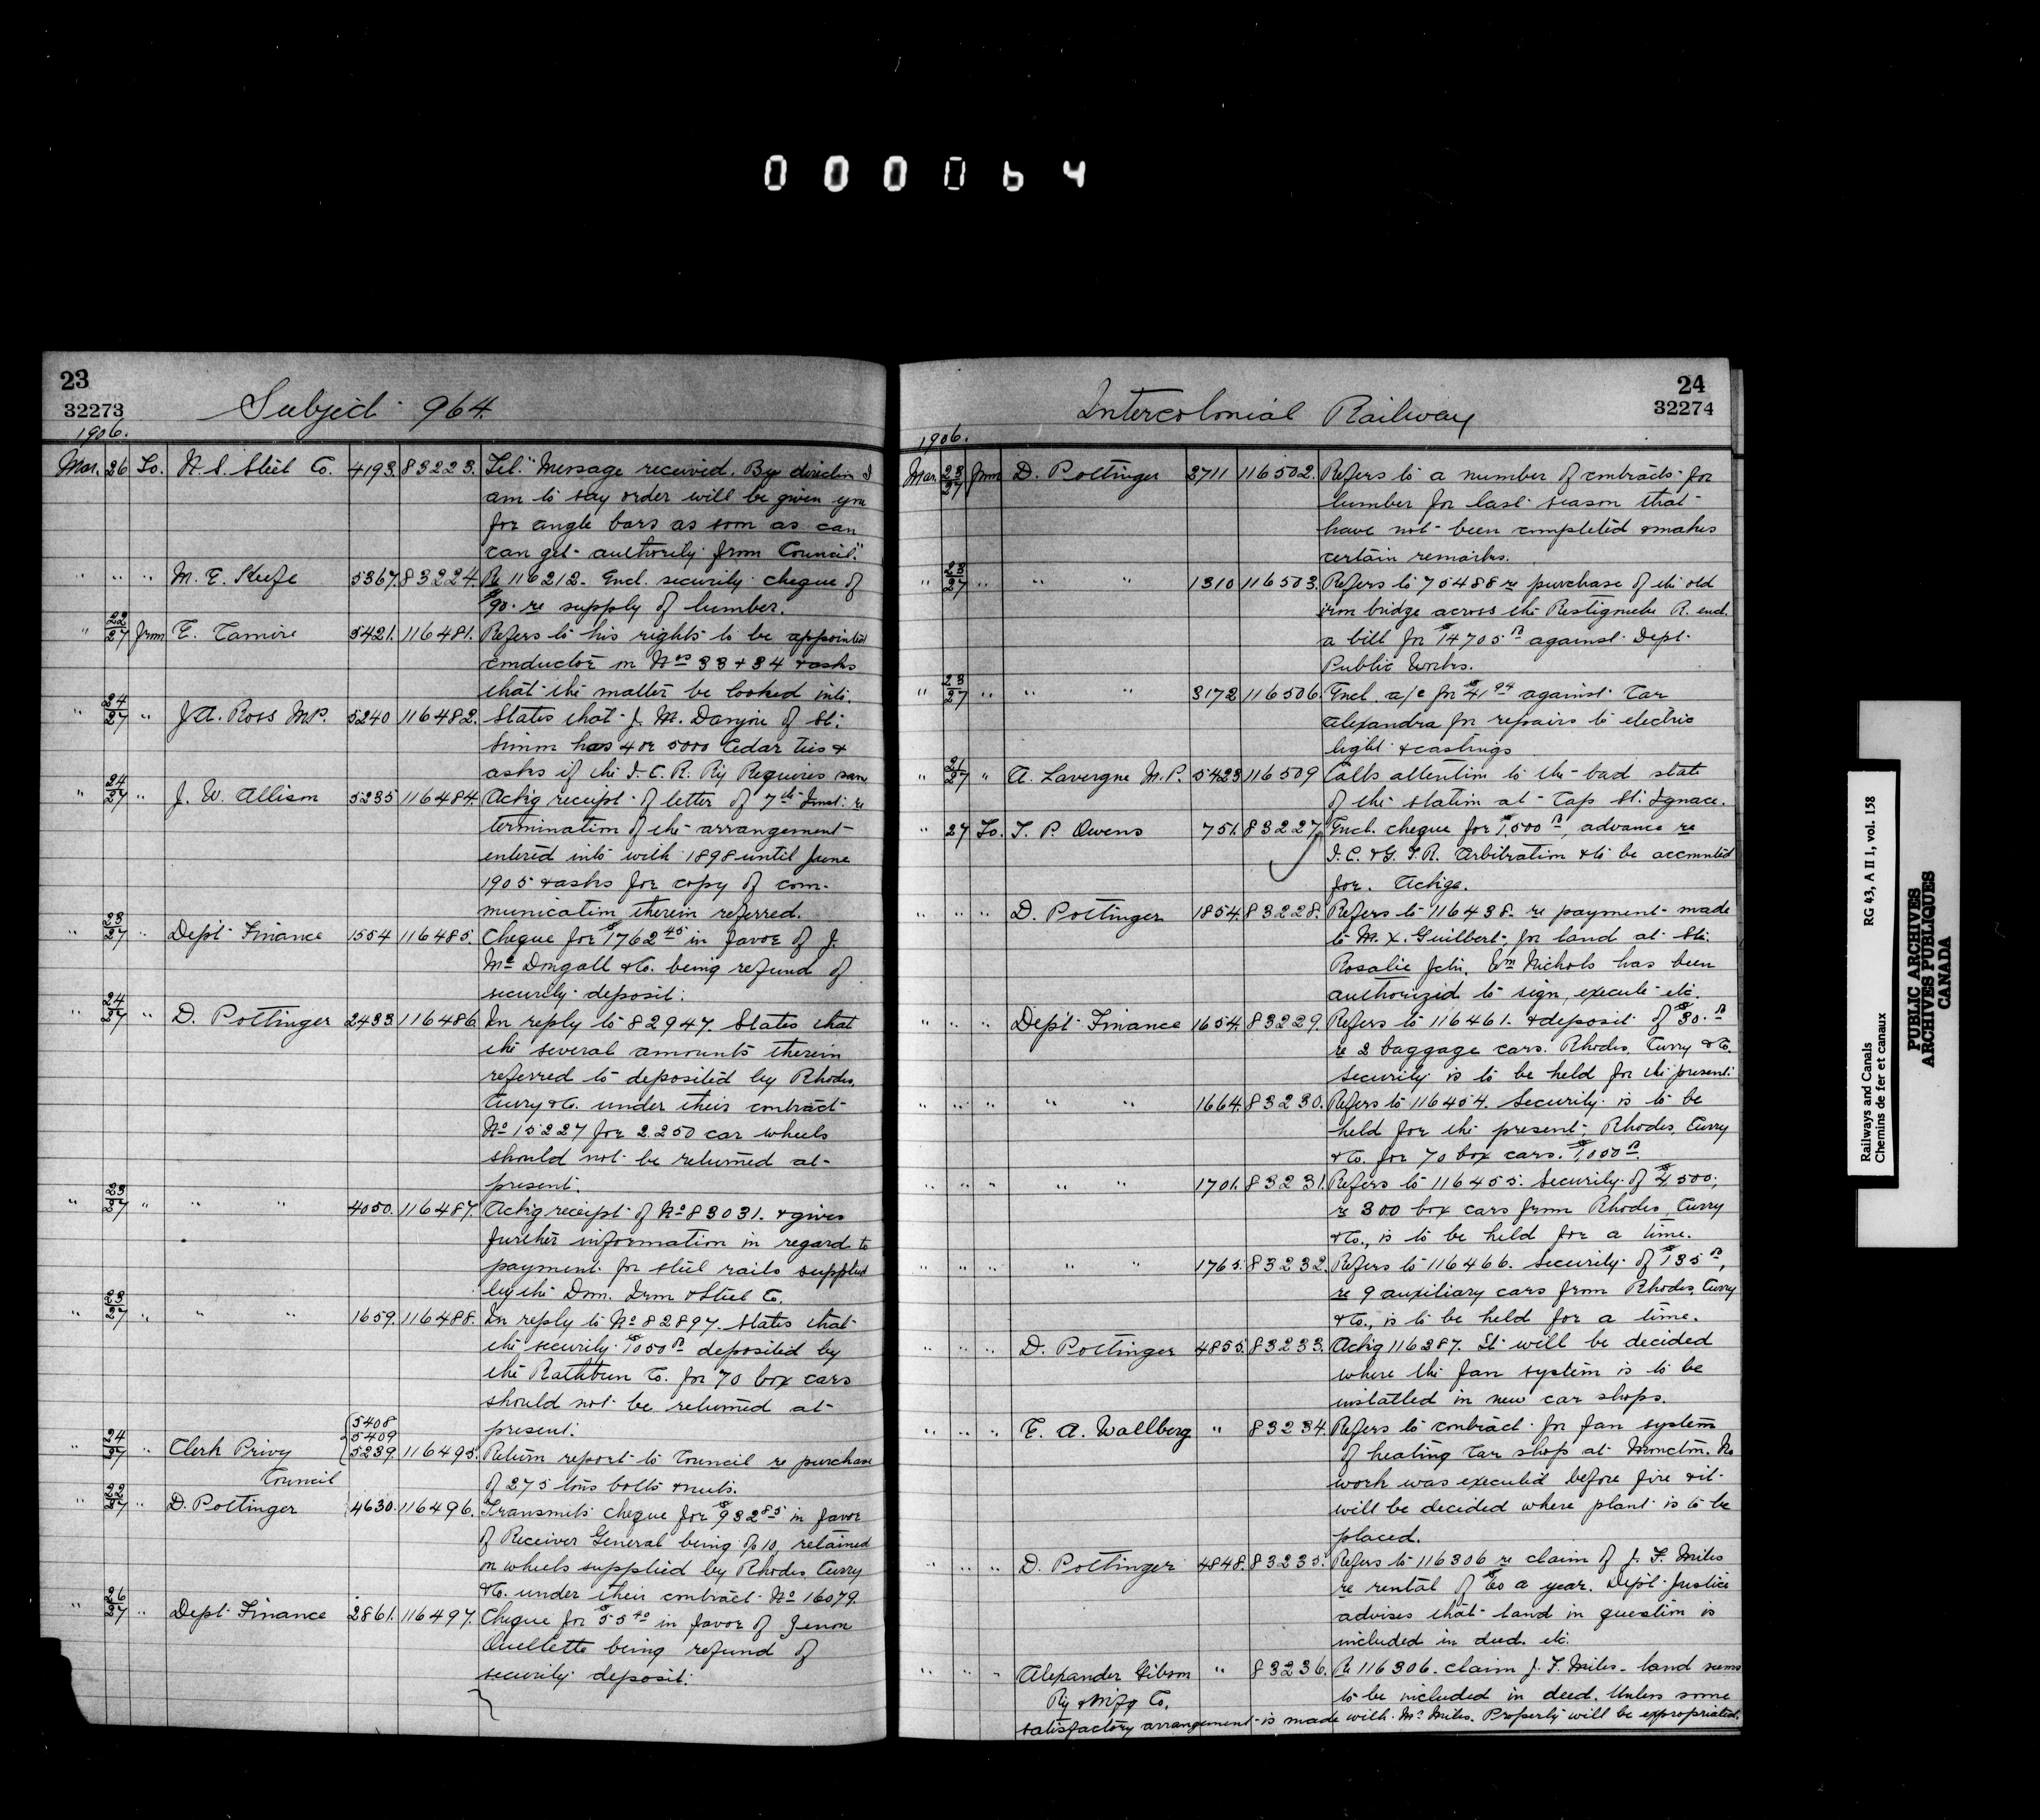 000064
23
32273
Subject 964.
1906.
Mar. 26 To. N. S. Steel Co. 4193. 83223. Tel. "Message received. By direction I
am to say order will be given you
for angle bars as soon as can
can get authority from Council."
" " " M. E. Keefe 5367. 83224. Re 116212. Encl. security cheque of
$90. re supply of lumber.
" 22/27 from E. Tamire 5421. 116481. Refers to his rights to be appointed
conductor on Nos 33 + 34 + asks
that the matter be looked into.
" 24/27 " J. A. Ross M.P. 5240 116482. States that J. M. Danjou of St.
Simon has 4 or 5000 Cedar ties +
asks if the I. C. R. Ry Requires same
" 24/27 " J. W. Allison 5235 116484. Ackg receipt of letter of 7th Inst. re
termination of the arrangement
entered into with 1898 until June
1905 + asks for copy of com-
munication therein referred.
" 23/27 " Dept Finance 1554 116485. Cheque for $1762 45 in favor of J.
Mc Dougall + Co. being refund of
security deposit.
" 24/27 " D. Pottinger 2433. 116486. In reply to 82947. States that
the several amounts therein
referred to deposited by Rhodes,
Curry + Co. under their contract
No 15227 for 2.250 car wheels
should not be returned at
present.
" 23/27 " " " 4050. 116487. Ackg receipt of No 83031. + gives
further information in regard to
payment for steel rails supplied
by the Dom. Iron + Steel Co.
" 23/27 " " " 1659. 116488. In reply to No 82897. States that
the security $1050 00 deposited by
the Rathbun Co. for 70 box cars
should not be returned at
present.
5408
5409
" 24/27 " Clerk Privy 5239. 116495. Return report to Council re purchase
Council of 275 tons bolts + nuts.
" 22/27 " D. Pottinger 4630. 116496. Transmits cheque for $932 85 in favor
of Receiver General being % 10, retained
on wheels supplied by Rhodes, Curry
+ Co. under their contract No 16079.
" 26/27 " Dept Finance 2861. 116497. Cheque for $55 40 in favor of Zenon
Ouellette being refund of
security deposit.
24
32274
Intercolonial Railway
1906.
Mar. 23/27 from D. Pottinger 2711 116502. Refers to a number of contracts for
lumber for last season that
have not been completed + makes
certain remarks.
" 23/27 " " " 1310 116503. Refers to 75488 re purchase of the old
iron bridge across the Restigouche R. encl.
a bill for $14705 00 against Dept.
Public Works.
" 23/27 " " " 3172 116506. Encl. a/c for $41 94 against Car
Alexandra for repairs to electric
light + castings
" 21/27 " A. Lavergne M.P. 5423 116509 Calls attention to the bad state
of the station at Cap St. Ignace.
" 27 To. T. P. Owens 751. 83227. Encl. cheque for $1,500 00, advance re
I. C. + G. T. R. Arbitration + to be accounted
for. Ackge.
" " " D. Pottinger 1854. 83228. Refers to 116438. re payment made
to M. X. Guilbert, for land at Ste.
Rosalie Jctn. Wm Nichols has been
authorized to sign, execute etc.
" " " Dept Finance 1654. 83229. Refers to 116461. + deposit of $30.00
re 2 baggage cars. Rhodes, Curry + Co.
Security is to be held for the present.
" " " " " 1664. 83230. Refers to 116454. Security is to be
held for the present, Rhodes, Curry
+ Co. for 70 box cars. $1,000 00.
" " " " " 1701. 83231. Refers to 116455. Security of $4500,
re 300 box cars from Rhodes, Curry
+ Co., is to be held for a time.
" " " " " 1765. 83232. Refers to 116466. Security of $135 00,
re 9 auxiliary cars from Rhodes, Curry
+ Co., is to be held for a time.
" " " D. Pottinger 4855. 83233. Ackg 116287. It will be decided
where the fan system is to be
installed in new car shops.
" " " E. A. Wallberg " 83234. Refers to contract for fan system
of heating Car shop at Moncton. No
work was executed before fire + it
will be decided where plant is to be
placed.
" " " D. Pottinger 4848. 83235. Refers to 116306 re claim of J. F. Miles
re rental of $60 a year. Dept Justice
advises that land in question is
included in deed. etc.
" " " Alexander Gibson " 83236. Re 116306. claim J. F. Miles. land seems
Ry + Mfg Co. to be included in deed. Unless some
satisfactory arrangement is made with Mr Miles. Property will be expropriated.
Railways and Canals RG 43, A II 1, vol. 158
Chemins de fer et canaux
PUBLIC ARCHIVES
ARCHIVES PUBLIQUES
CANADA